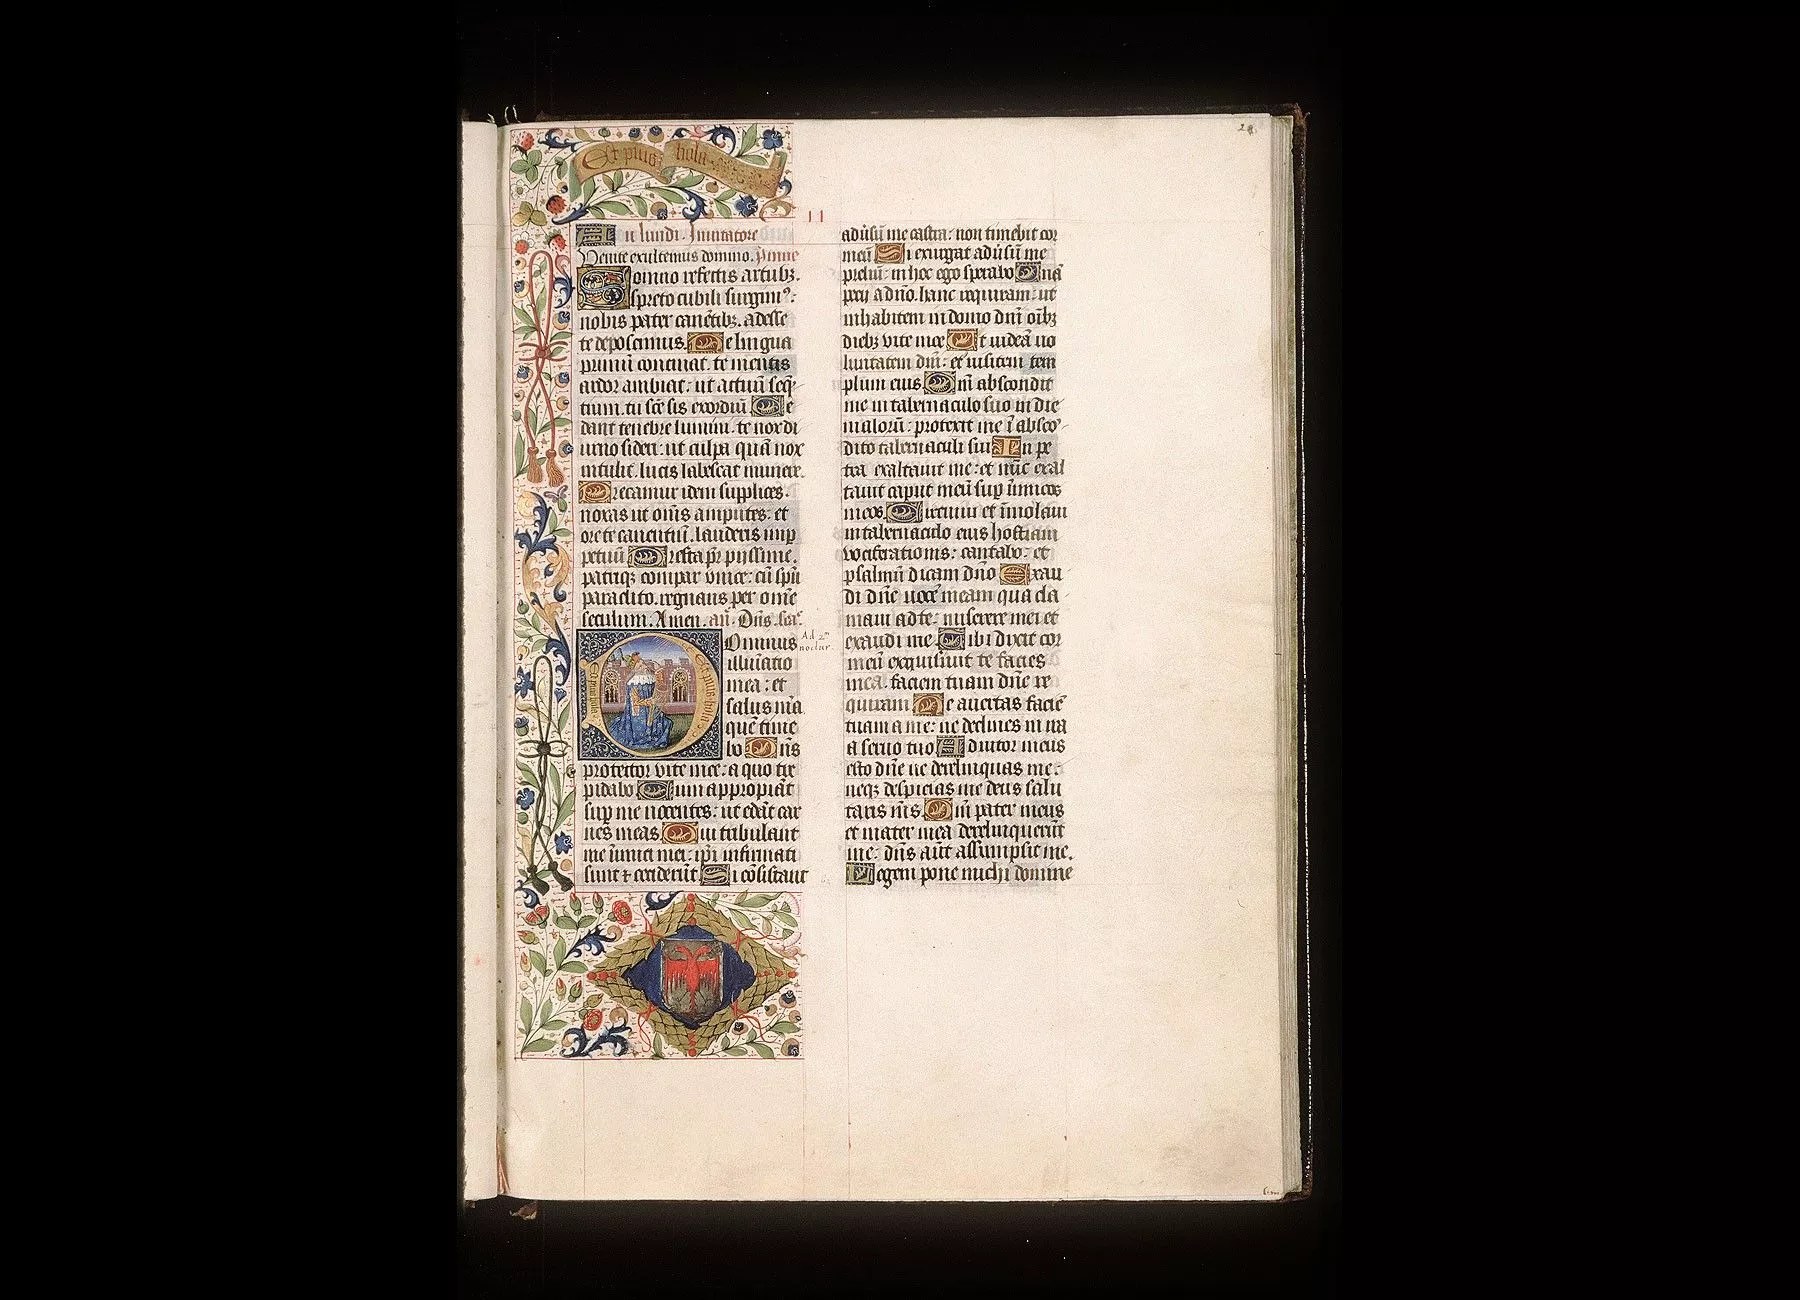 Et plus hola
28
11
Au lundi. Inuitatore
Venite exultemus domino. Pinne
Somno refectis artubꝫ.
spreto cubili surgimꝰ:
nobis pater canētibꝫ. adesse
te deposcimus. Te lingua
primū concinat. te mentis
ardor ambiat: ut actuū seq̄
tium. tu sc̄e sis exordiū Ce
dant tenebre lumini. te nox di
urno sideri: ut culpa quā nox
intulit. lucis labescat munere.
Precamur idem supplices.
noxas ut om̄is amputes: et
ore te canentiū. lauderis imp̲
petuū Presta pr̄ pijssime.
patriqꝫ compar vnice: cū spū
paraclito. regnans per om̄e
seculum. Amen. an̄. Dn̄s. sc̄a.
Dominus
Ad 2m
noctur.
illuīatio
mea: et
salus mīa
quē time
bo Dn̄s
protector vite mee: a quo tre
pidabo Dum appropiāt
sup̲ me nocentes: ut edāt car
nes meas. Qui tribulant
me īimici mei: ipī infirmati
sunt ⁊ ceciderūt Si cōsistant
Et plus hola
Et plus hola
adūsū me castra: non timebit cor
meū Si exurgat adūsū me
preliū: in hoc ego sperabo Unā
peci a dn̄o. hanc requiram: ut
inhabitem in domo dn̄i oībꝫ
diebꝫ vite mee Ut uideā uo
luntatem dn̄i: et uisitem tem
plum eius Qm̄ abscondit
me in tabernaculo suo in die
malorū: protexit me ī absco
dito tabernaculi sui In pe
tra exaltauit me: et nūc exal
tauit caput meū sup̲ īimicos
meos. Circuiui et īmolaui
in tabernaculo eius hostiam
vociferationis: cantabo: et
psalmū dicam dn̄o Exau
di dn̄e uocē meam qua cla
maui ad te: miserere mei et
exaudi me. Tibi dixit cor
meū exquisiuit te facies
mea. faciem tuam dn̄e re
quiram Ne auertas faciē
tuam a me: ne declines in ira
a seruo tuo Adiutor meus
esto dn̄e ne derelinquas me:
neqꝫ despicias me deus salu
taris m̄s. Qm̄ pater meus
et mater mea derelinquerūt
me: dn̄s aūt assumpsit me.
Legem pone michi domine